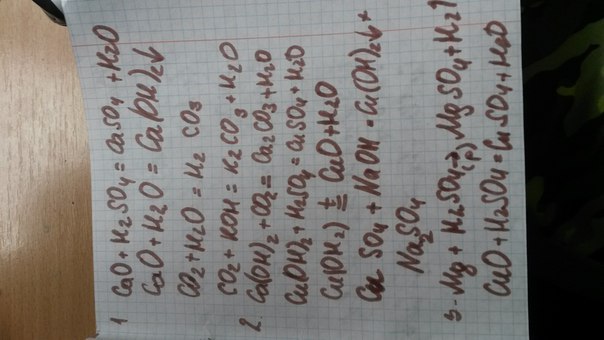 1 CaO + H2SO4 = CaSO4 + H2O
CaO + H2O = Ca(OH)2↓
CO2 + H2O = H2CO3
CO2 + KOH = K2CO3 + H2O
2. Ca(OH)2 + CO2 = Ca2CO3 + H2O
Cu(OH)2 + H2SO4 = CuSO4 + H2O
Cu(OH2) t= CuO + H2O
CuSO4 + NaOH = Cu(OH)2↓ +
Na2SO4
3- Mg + H2SO4(p) → MgSO4 + H2↑
CuO + H2SO4 = CuSO4 + H2O